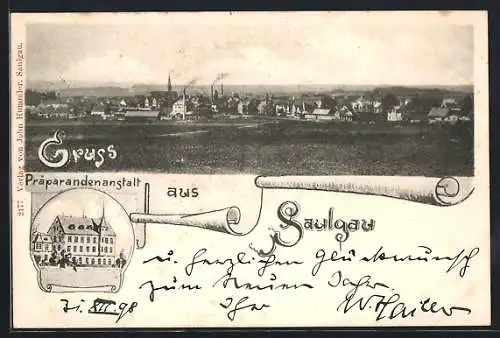 2177 Verlag von John Hummler, Saulgau.
Gruss
Präparandenanstalt
aus
Saulgau
u. herzlichen Glückwunsch
zum Neuen Jahr.
31. XII. 98 Ihr W. Haller